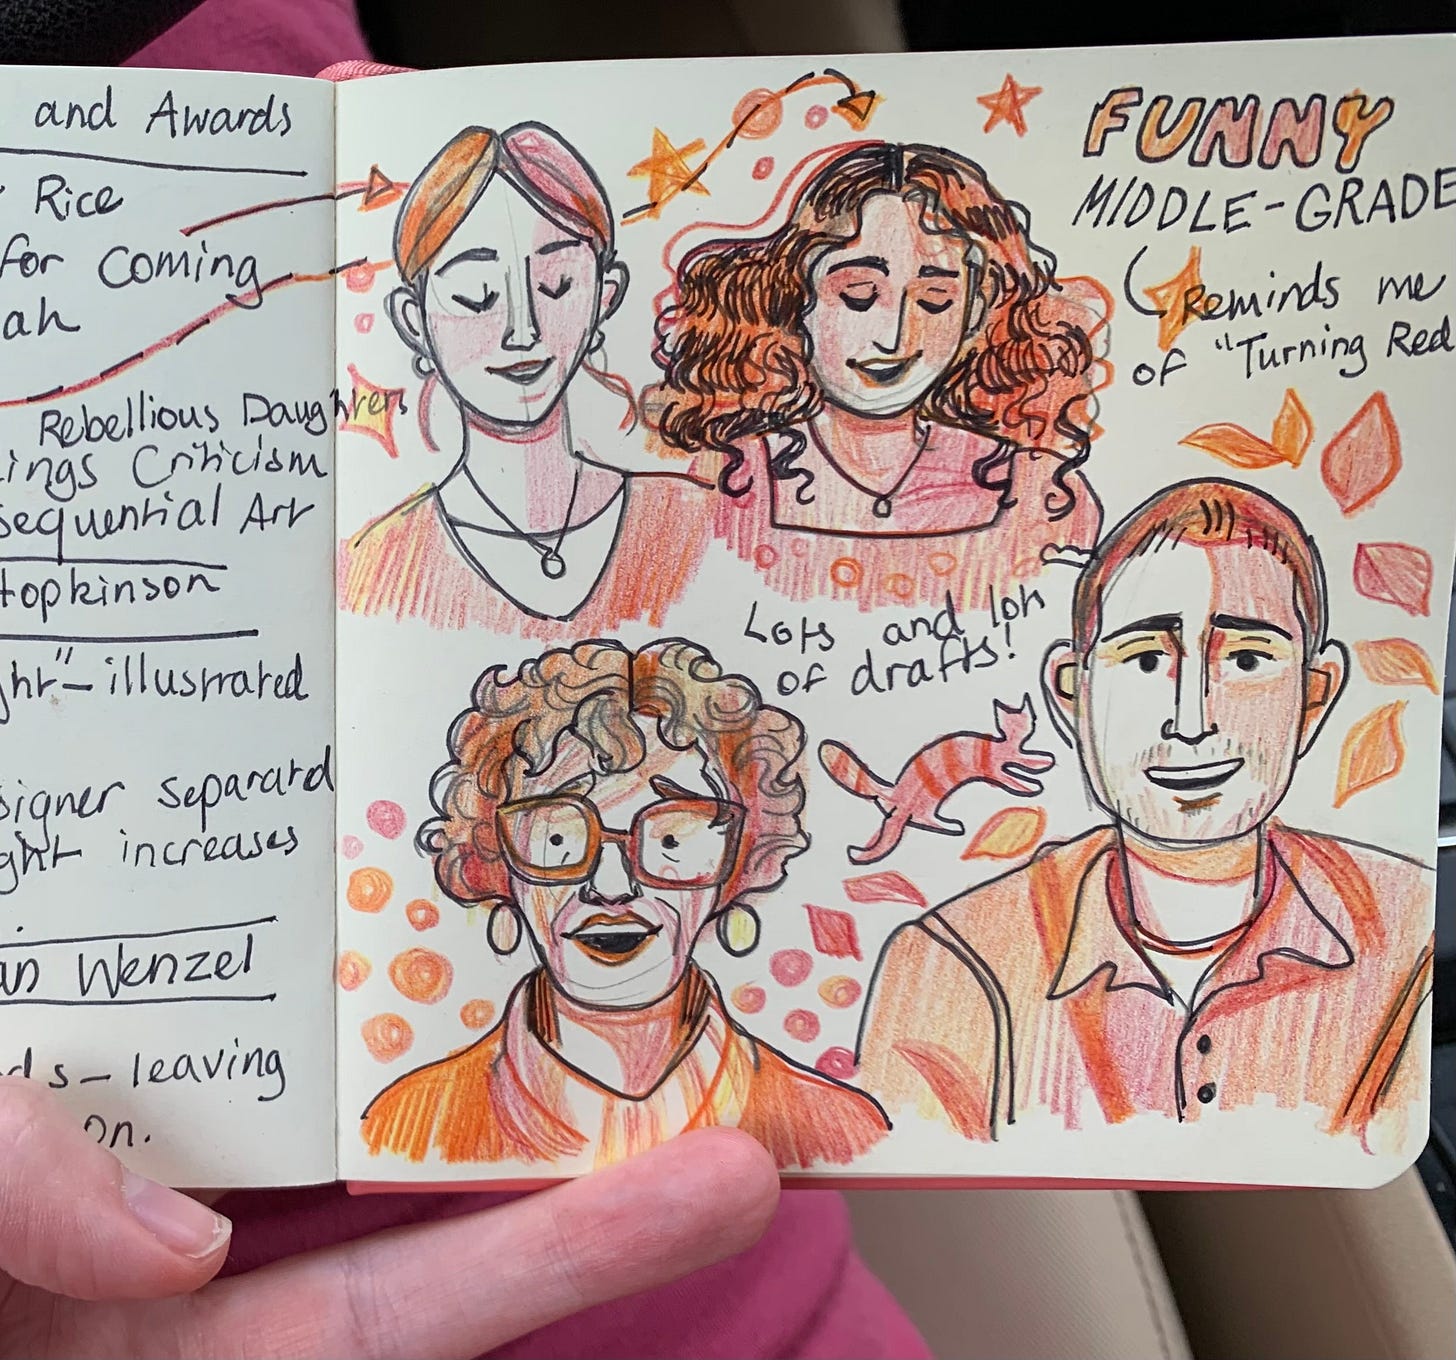 and Awards
Rice
for Coming
ah
Rebellious Daughters
ings Criticism
sequential Art
Hopkinson
ght" - illustrated
signer separated
ght increases
an Wenzel
ds - leaving
on.
FUNNY
MIDDLE-GRADE
Reminds me
of "Turning Red
Lots and lots
of drafts!